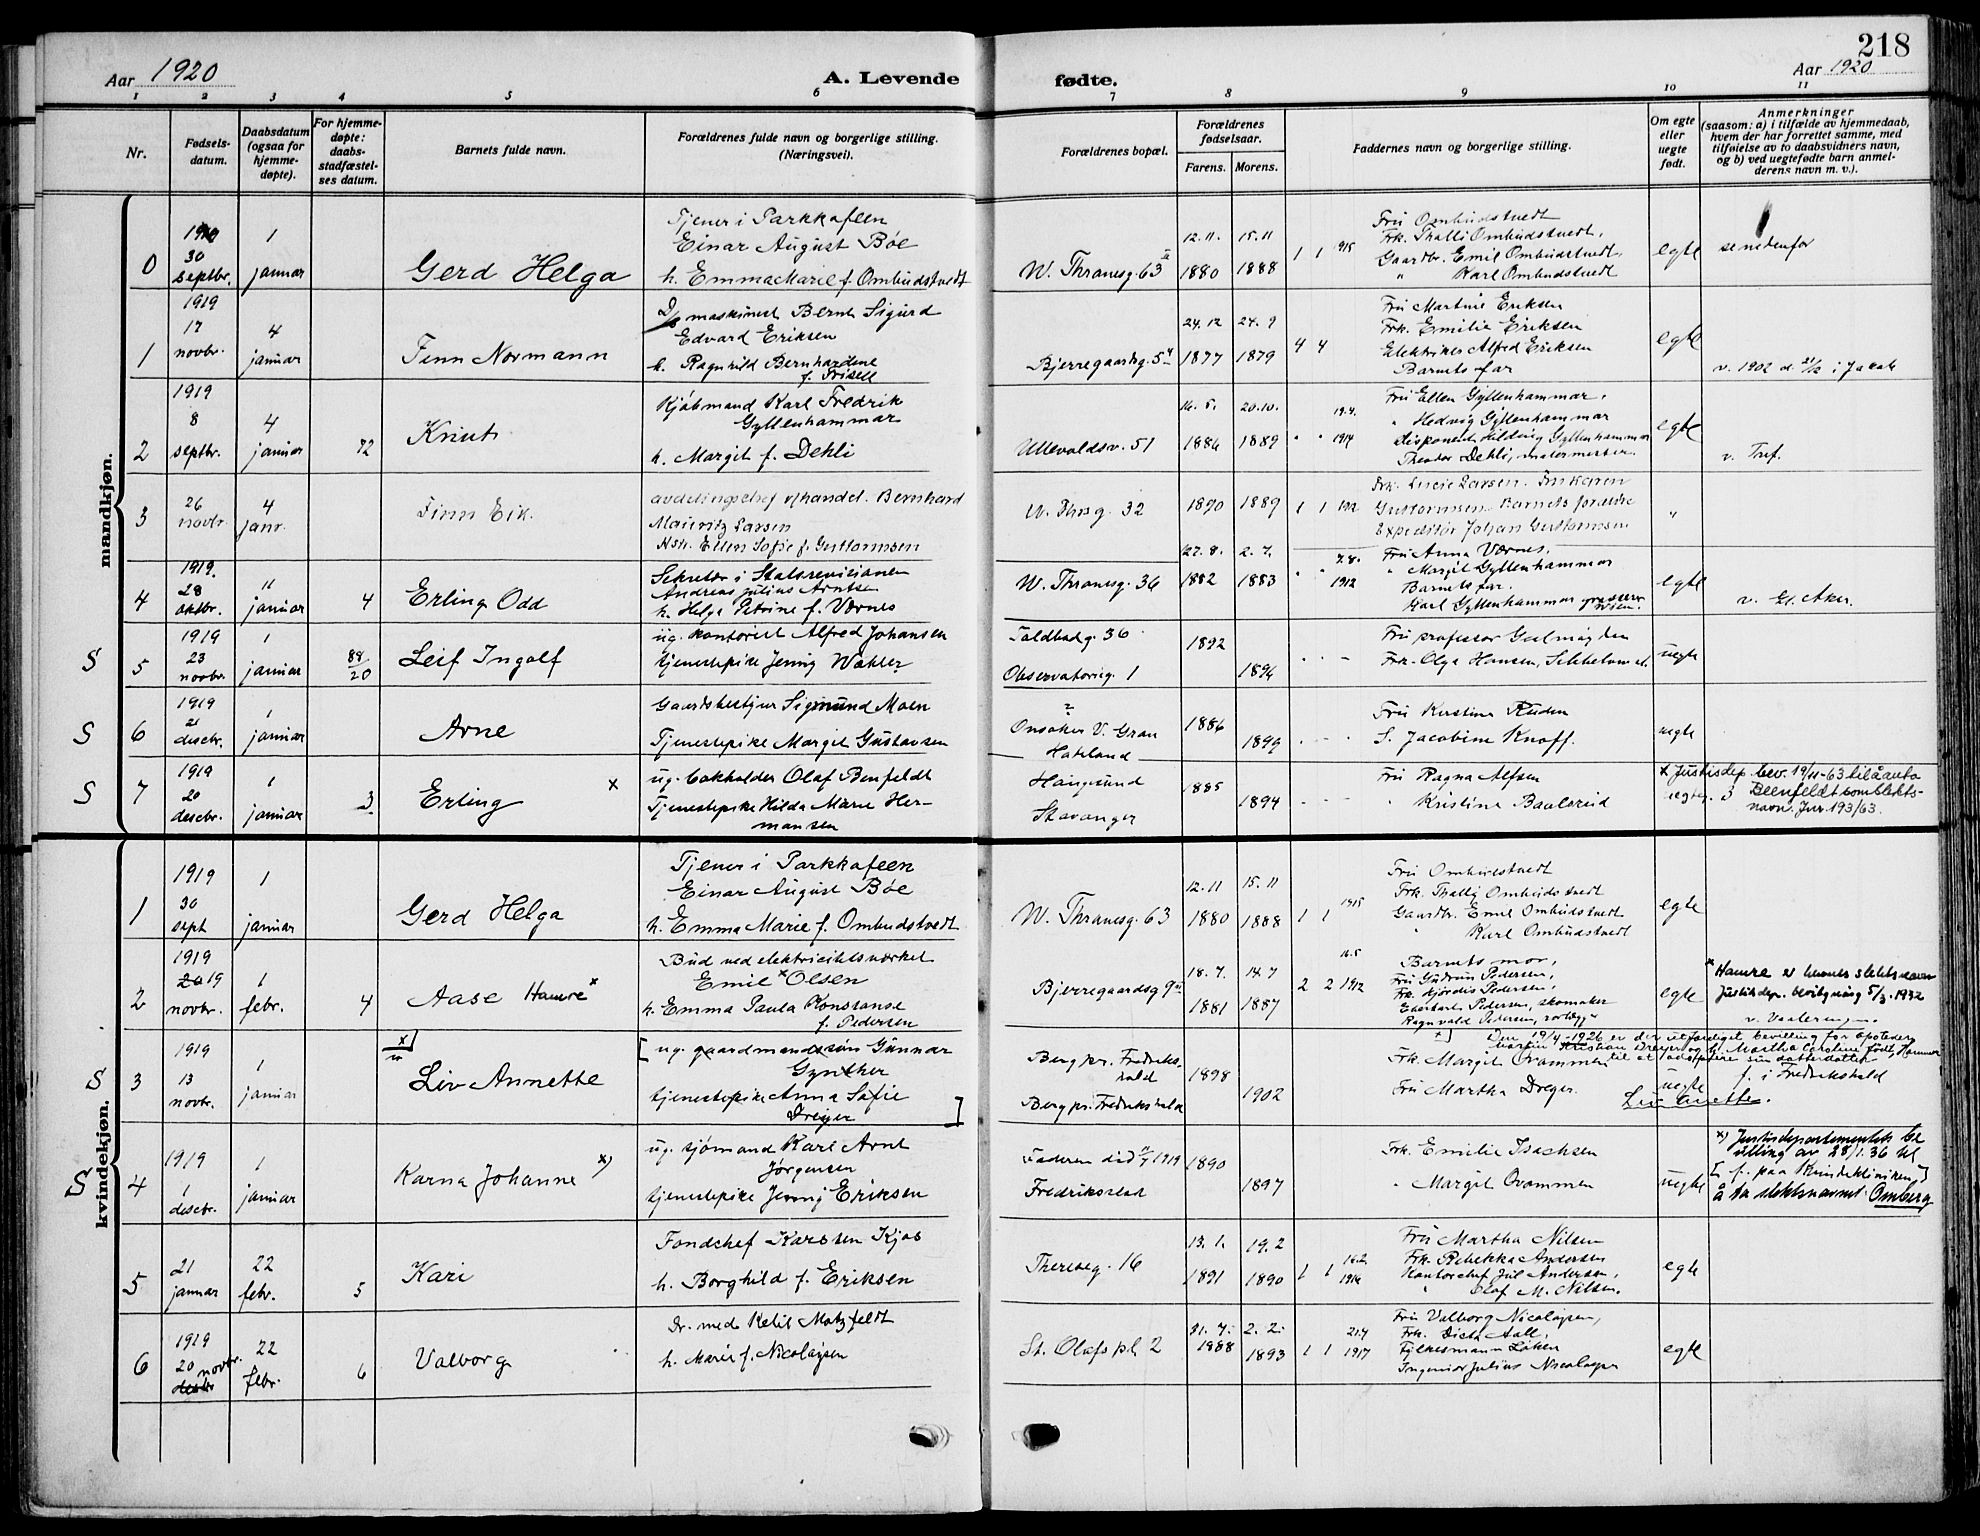 218
Aar 1920
A. Levende
fødte.
Aar 1920
1 2 3 4 5 6 7 8 9 10 11
Nr.
Fødsels-
datum.
Daabsdatum
(ogsaa for
hjemme-
døpte).
For hjemme-
døpte:
daabs-
stadfæstel-
ses datum.
Barnets fulde navn.
Forældrenes fulde navn og borgerlige stilling.
(Næringsvei).
Forældrenes bopæl.
Forældrenes
fødselsaar.
Farens. Morens.
Faddernes navn og borgerlige stilling.
Om egte
eller
uegte
født.
Anmerkninger
(saasom: a) i tilfælde av hjemmedaab,
hvem der har forrettet samme, med
tilføielse av to daabsvidners navn,
og b) ved uegtefødte barn anmel-
derens navn m. v.).
mandkjøn.
0
30
septbr.
1
januar
Gerd Helga
Tjener i Parkkafeen
Einar August Bøe
h. Emma Marie f. Ombudstvedt
W. Thranesg. 63
12.11. 1880
15.11 1888
1 1 1915
Fru Ombudstvedt
Frk. Thalli Ombudstvedt,
Gaardbr. Emil Ombudstvedt,
" Karl Ombudstvedt
egte
se nedenfor
1
1919
17
novbr.
4
januar
Finn Normann
maskinist Bernt Sigurd
Edvard Eriksen
h. Ragnhild Bernhardene
f. Frisell
Bjerregaardsg. 5
24.12 1877
24.9 1879
4 4
Fru Martine Eriksen
Frk. Emilie Eriksen
Elektriker Alfred Eriksen
Barnets far
egte
v. 1902 d. 21/12 i Jacob
2
1919
8
septbr.
4
januar
72
Knut
Kjøbmand Karl Fredrik
Gyllenhammar
h. Margit f. Dehli
Ullevoldsv. 51
16.5. 1886
20.10. 1889
" " 19.4. 1914
Fru Ellen Gyllenhammar,
" Hedvig Gyllenhammar
Disponent Hilding Gyllenhammar
Theodor Dehli, malermester.
egte
v. Trf.
3
26
novbr.
4
janr.
Finn Eik.
avdelingschef v/handel. Bernhard
Mauritz Larsen
Hstr. Ellen Sofie f. Gustormsen
W. Thrsg. 32
1890
1889
1 1
Frk. Lucie Larsen.
Gustormsen. Barnets forældre
Expeditør Johan Gustormsen
"
4
1919.
28
oktbr.
11
januar
4
Erling Odd
Sekretær i Statsrevisionen
Andreas Julius Arntsen
h. Helga Petrine f. Værnes
W. Thranesg. 36
27.8. 1882
2.7. 1883
" " 7.8. 1912
Fru Anna Værnes.
" Margit Gyllenhammar
Barnets far.
Karl Gyllenhammar
egte
v. Gl. Aker.
S 5
1919
23
novbr.
1
januar
88
20
Leif Ingolf
ug. kontorist Alfred Johansen
tjenestepike Jenny Wahler
Toldbodg. 36
Observatorieg. 1
1892
1896
Fru professor Guldmigden
Frk. Olga Hansen,
uegte
S 6
1919
21
decbr.
1
januar
Arne
Gaardsbestyrer Sigmund Moen
Tjenestepike Margit Gustavsen
Onsaker V. Gran
Hadeland
1886
1899
Fru Kirstine Ruden
S. Jacobine Knoff.
uegte
S 7
1919
20
decbr.
1
januar
3
Erling x
ug. bokholder Olaf Benfeldt
Tjenestepike Hilda Marie Her-
mansen
Haugesund
Stavanger
1885
1894
Fru Ragna Alfsen
" Kristine Baalsrud
uegte.
x Justisdep. bev. 19/11-63 til å anta
Beenfeldt som slekts-
navn. Jnr. 193/63.
kvindekjøn.
1
1919
30
sept
1
januar
Gerd Helga
Tjener i Parkkafeen
Einar August Bøe
h. Emma Marie f. Ombudstvedt
W. Thranesg. 63
12.11 1880
15.11 1888
1 1 1915
Fru Ombudstvedt
Frk. Thalli Ombudstvedt
Gaardbr. Emil Ombudstvedt
" Karl Ombudstvedt
egte
2
1919
20 19
novbr.
1
febr.
4
Aase Hamre x
Bud ved elektricitetsverket
Emil x Olsen
h. Emma Paula Konstanse
f. Pedersen
Bjerregaardsg 9
18.7. 1881
14.7 1887
2 2 16.5 1912
Barnets mor,
Fru Gudrun Pedersen,
Frk. Hjørdis Pedersen,
Pedersen, skomaker
Ragnvald Pedersen, rørlægger
egte
x Hamre er hennes slektsnavn
Justisdep. bevilgning 5/3.1932
S 3
1919
13
novbr.
1
januar
x)
Liv Annette
[ ug. gaardmandssøn Gunnar
Gynther
tjenestepike Anna Sofie
Dreyer ]
Berg pr. Fredriks-
hald
Berg pr. Fredrikshald
1898
1902
Den 19/4-1926 er der utfærdiget bevilling for apoteker
Martin Kristian Dreyer og h. Martha Caroline født Hammer
til at adoptere sin datterdatter
Frk. Margit Ovammen
Fru Martha Dreyer.
uegte
f. i Fredrikshald
Liv Anette.
S 4
1919
1
decbr.
1
januar
Karna Johanne x)
ug. sjømand Karl Arnt
Jørgensen
tjenestepike Jenny Eriksen
Faderen død 1919
Fredriksstad
1890
1897
Frk. Emilie Isachsen
" Margit Ovammen
uegte
x) Justisdepartementets be-
villing av 28/1.36 til
[ f. paa Kvindeklinikken ]
å ta slektsnavnet Omberg
5
21
januar
22
febr.
5
Kari
Fondschef Karsten Kjos
h. Borghild f. Eriksen
Theresesg. 16
13.1. 1891
19.2 1890
1 1
Fru Martha Nilsen
Frk. Rebekka Andersen
Kontorchef Jul Andersen,
" Olaf M. Nilsen.
egte
6
1919
20 novbr.
decbr
22
febr.
6
Valborg
Dr. med Ketil Motzfeldt
h. Marie f. Nicolaysen
St. Olafs pl 2
31.7. 1888
2.2. 1893
1 1 21.7 1917
Fru Valborg Nicolaysen,
Frk. Dicta Aall,
Løken
Ingeniør Julius Nicolaysen
egte